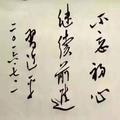 不忘初心
继续前进
习近平
二〇一六·七·一